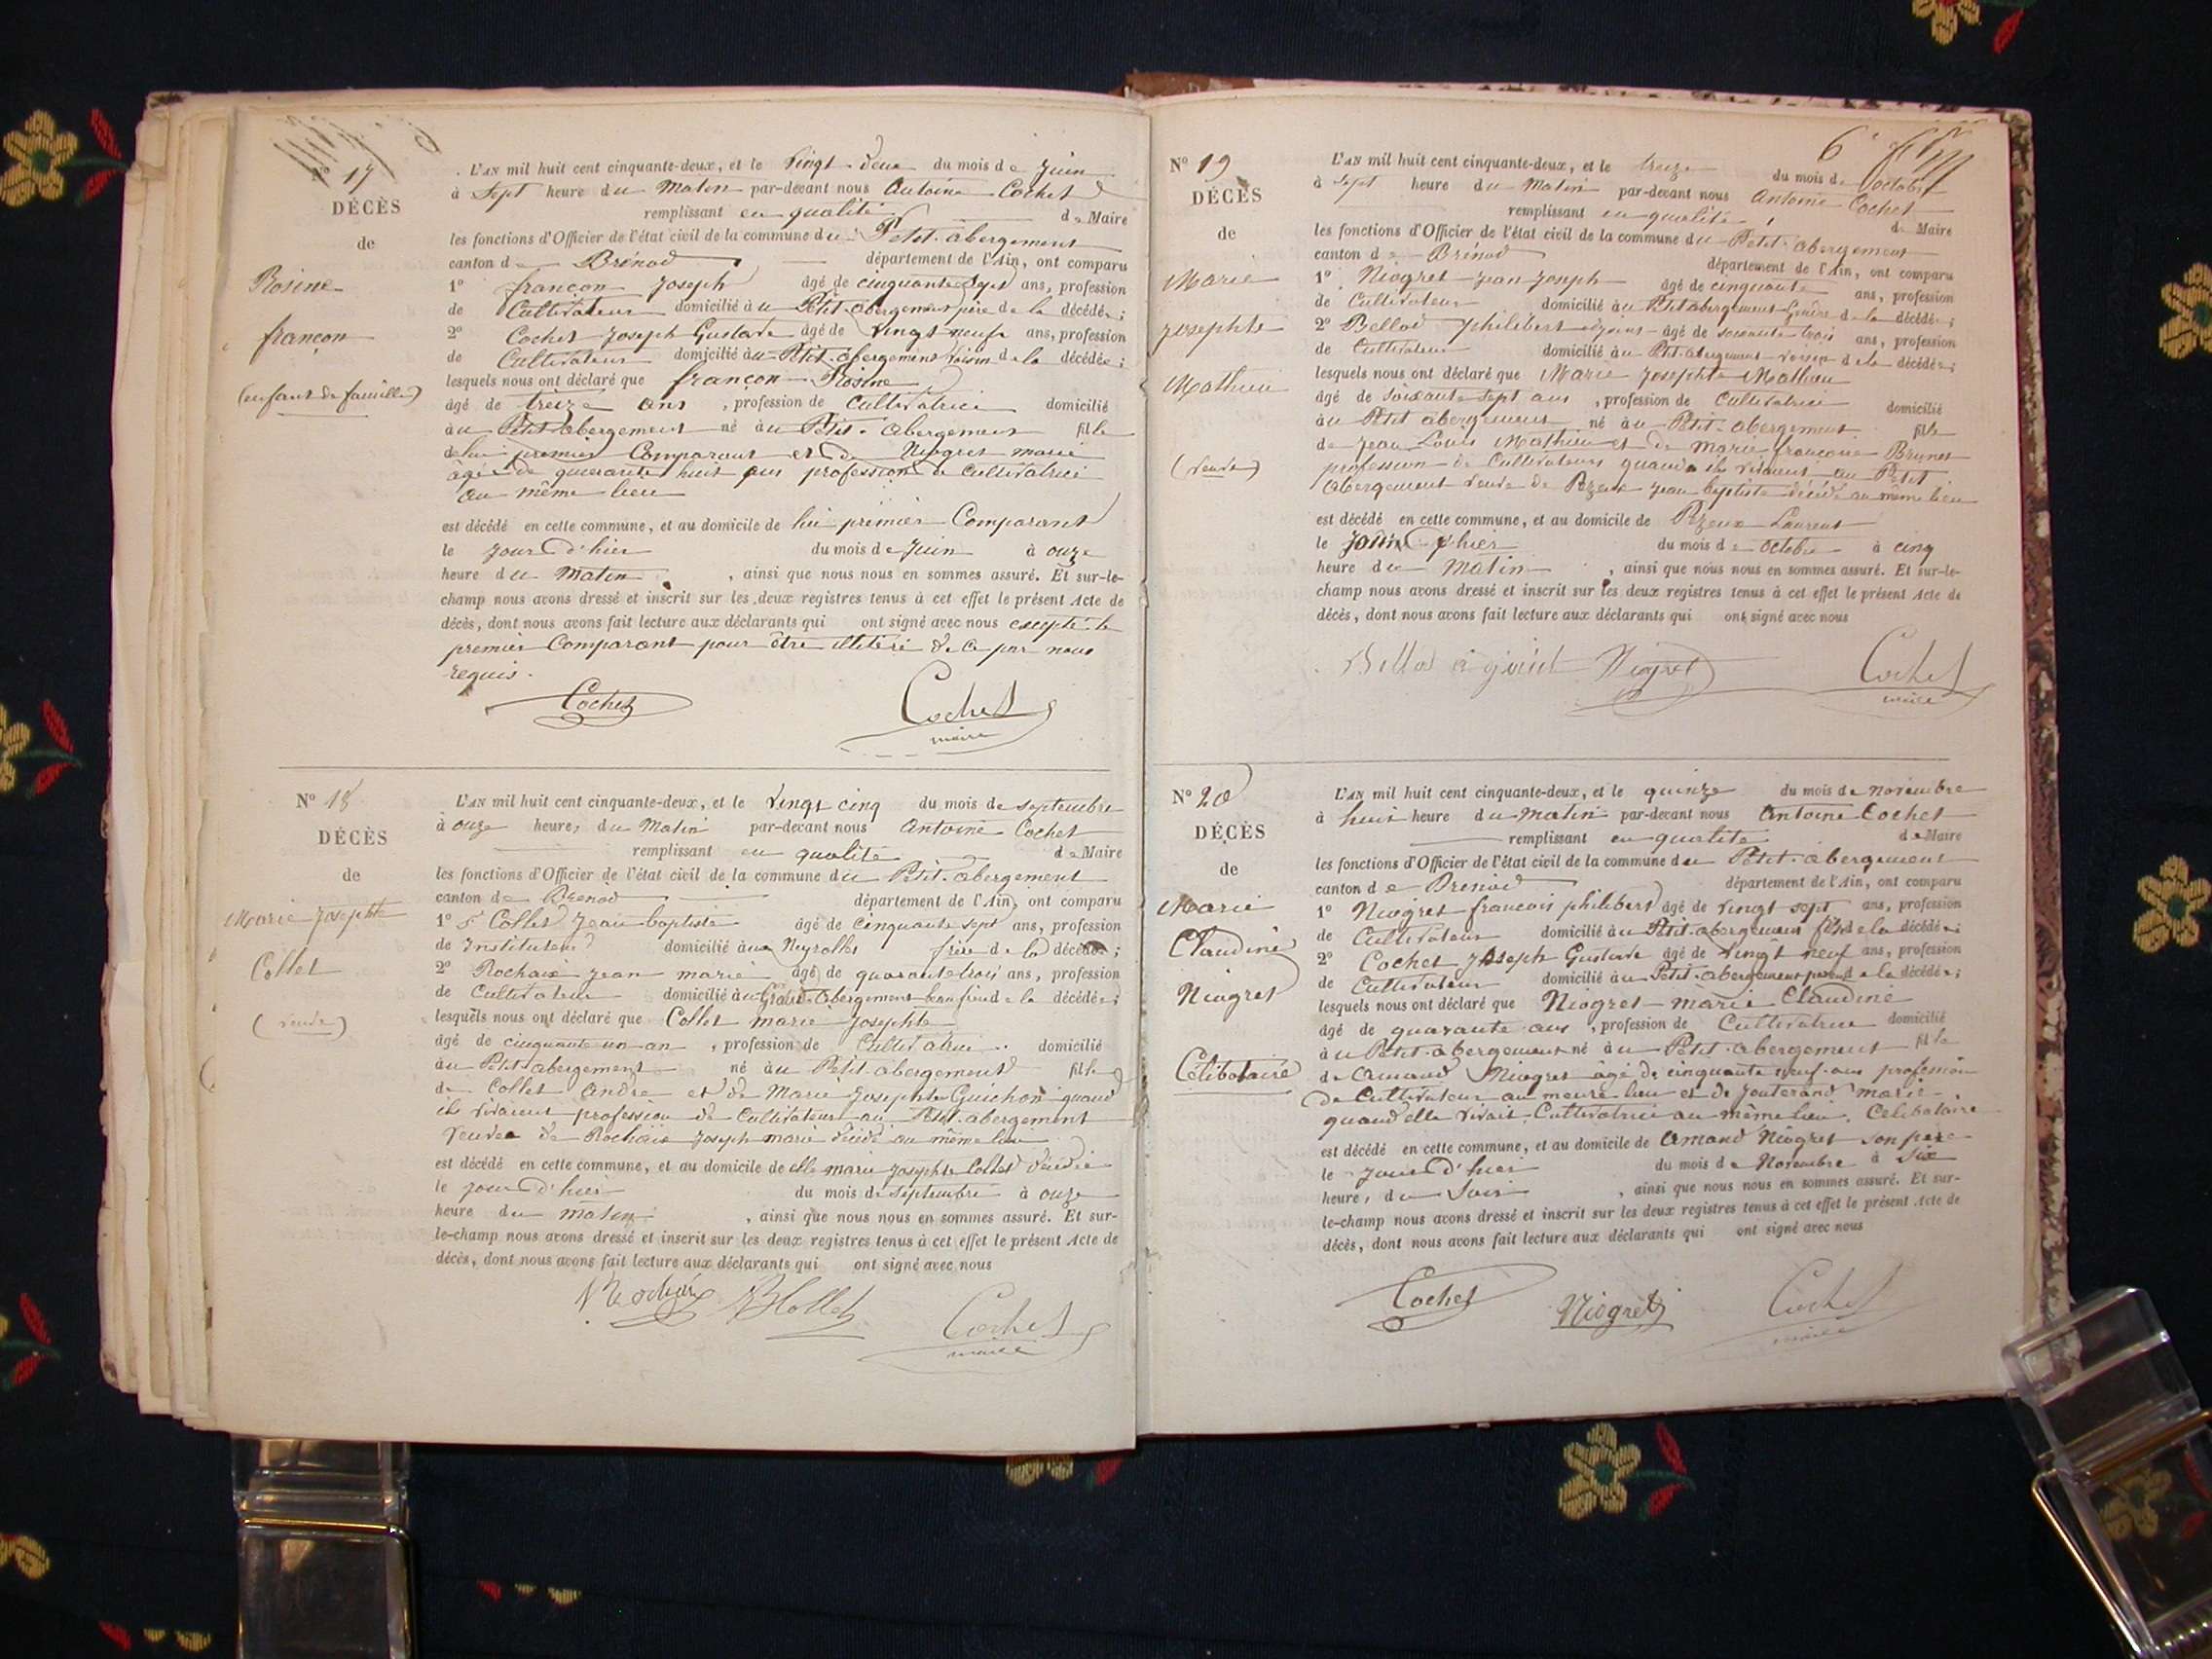 17
DÉCÈS
de
Rosine
françon
(enfant de famille)
L'AN mil huit cent cinquante-deux, et le Vingt-deux du mois de Juin
à Sept heure du Matin par-devant nous Antoine Cochet
remplissant en qualité de Maire
les fonctions d'Officier de l'état civil de la commune du Petit-abergement
canton de Brénod département de l'Ain, ont comparu
1º françon Joseph âgé de cinquante Sept ans, profession
de Cultivateur domicilié au Petit-abergement père de la décédée;
2º Cochet Joseph Gustave âgé de Vingt neuf ans, profession
de Cultivateur domicilié au Petit-abergement voisin de la décédée;
lesquels nous ont déclaré que françon Rosine
âgé de treize ans, profession de Cultivatrice domicilié
au Petit abergement né au Petit-abergement fille
de lui premier Comparant et de Niogret marie
âgée de quarante huit ans profession de Cultivatrice
au même lieu
est décédé en cette commune, et au domicile de lui premier Comparant
le Jour d'hier du mois de Juin à onze
heure du Matin, ainsi que nous nous en sommes assuré. Et sur-le-
champ nous avons dressé et inscrit sur les deux registres tenus à cet effet le présent Acte de
décès, dont nous avons fait lecture aux déclarants qui ont signé avec nous excepté le
premier Comparant pour être illiteré de ce par nous
requis.
Cochet Cochet
maire
Nº 18
DÉCÈS
de
Marie Josephte
Collet
(veuve)
L'AN mil huit cent cinquante-deux, et le Vingt cinq du mois de septembre
à onze heure, du Matin par-devant nous Antoine Cochet
remplissant en qualité de Maire
les fonctions d'Officier de l'état civil de la commune du Petit-abergement
canton de Brenod département de l'Ain, ont comparu
1º Collet Jean baptiste âgé de Cinquante sept ans, profession
de Instituteur domicilié à Neyrolles frère de la décédée;
2º Rochaix Jean marie âgé de quarante trois ans, profession
de Cultivateur domicilié au Grand-Abergement beau frère de la décédée;
lesquels nous ont déclaré que Collet marie Josephte
âgé de cinquante un an, profession de Cultivatrice domicilié
au Petit abergement né au Petit-abergement fille
de Collet André et de Marie Josephte Guichon quand
ils vivaient profession de Cultivateurs au Petit-abergement
veuve de Rochaix Joseph marie décédé au même lieu
est décédé en cette commune, et au domicile de elle marie Josephte Collet décédée
le jour d'hier du mois de septembre à onze
heure du matin, ainsi que nous nous en sommes assuré. Et sur-
le-champ nous avons dressé et inscrit sur les deux registres tenus à cet effet le présent Acte de
décès, dont nous avons fait lecture aux déclarants qui ont signé avec nous
Rochaix Collet Cochet
maire
6
Nº 19
DÉCÈS
de
Marie
Josephte
Mathieu
(veuve)
L'AN mil huit cent cinquante-deux, et le treize du mois de octobre
à Sept heure du Matin par-devant nous Antoine Cochet
remplissant en qualité de Maire
les fonctions d'Officier de l'état civil de la commune du Petit-abergement
canton de Brénod département de l'Ain, ont comparu
1º Niogret Jean Joseph âgé de cinquante ans, profession
de Cultivateur domicilié au Petit abergement de la décédée;
2º Bellod philibert âgé de soixante trois ans, profession
de Cultivateur domicilié au Petit-abergement voisin de la décédée;
lesquels nous ont déclaré que Marie Josephte Mathieu
âgé de soixante sept ans, profession de Cultivatrice domicilié
au Petit abergement né au Petit-abergement fille
de Jean Louis Mathieu et de Marie françoise Brunet
profession de Cultivateurs quand ils vivaient au Petit
abergement veuve de Pezeux Jean baptiste décédé au même lieu
est décédé en cette commune, et au domicile de Pezeux Laurent
le Jour d'hier du mois de octobre à cinq
heure du Matin, ainsi que nous nous en sommes assuré. Et sur-le-
champ nous avons dressé et inscrit sur les deux registres tenus à cet effet le présent Acte de
décès, dont nous avons fait lecture aux déclarants qui ont signé avec nous
Bellod Niogret Cochet
maire
Nº 20
DÉCÈS
de
Marie
Claudine
Niogret
Célibataire
L'AN mil huit cent cinquante-deux, et le quinze du mois de novembre
à huit heure du matin par-devant nous Antoine Cochet
remplissant en qualité de Maire
les fonctions d'Officier de l'état civil de la commune du Petit-abergement
canton de Brénod département de l'Ain, ont comparu
1º Niogret françois philibert âgé de vingt sept ans, profession
de Cultivateur domicilié au Petit-abergement de la décédée;
2º Cochet Joseph Gustave âgé de Vingt neuf ans, profession
de Cultivateur domicilié au Petit-abergement de la décédée;
lesquels nous ont déclaré que Niogret marie Claudine
âgé de quarante ans, profession de Cultivatrice domicilié
au Petit-abergement né au Petit-abergement fille
de Armand Niogret agé de cinquante neuf ans profession
de Cultivateur au meme lieu et de Jouterand marie
quand elle vivait Cultivatrice au même lieu. Célibataire
est décédé en cette commune, et au domicile de Armand Niogret son père
le Jour d'hier du mois de Novembre à Six
heure, du Soir, ainsi que nous nous en sommes assuré. Et sur-
le-champ nous avons dressé et inscrit sur les deux registres tenus à cet effet le présent Acte de
décès, dont nous avons fait lecture aux déclarants qui ont signé avec nous
Cochet Niogret Cochet
maire